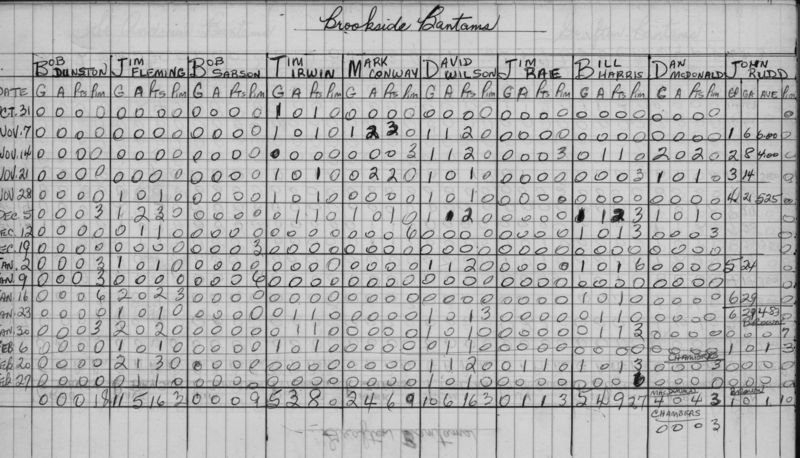 Brookside Bantams
BOB DUNSTON JIM FLEMING BOB SARSON TIM IRWIN MARK CONWAY DAVID WILSON JIM RAE BILL HARRIS DAN MCDONALD JOHN RUDD
DATE G A Pts Pim G A Pts Pim G A Pts Pim G A Pts Pim G A Pts Pim G A Pts Pim G A Pts Pim G A Pts Pim G A Pts Pim GP GA AVE Pim
OCT. 31 0 0 0 0 0 0 0 0 1 0 1 0 0 0 0 0 0 0 0 0 0 0 0 0
NOV. 7 0 0 0 0 0 0 0 0 1 0 1 0 1 2 3 0 1 1 2 0 0 0 0 0 0 0 0 0 0 0 0 0 1 6 6.00
NOV. 14 0 0 0 0 0 0 0 0 0 0 0 0 0 1 0 0 0 0 3 1 1 2 0 0 0 0 3 0 1 1 0 2 0 2 0 2 8 4.00
NOV. 21 0 0 0 0 0 0 0 0 0 0 0 0 1 0 1 0 0 2 2 0 1 0 1 0 0 0 0 0 0 0 0 3 1 0 1 0 3 14
NOV. 28 0 0 0 0 1 0 1 0 1 0 1 0 0 0 0 0 1 0 1 0 0 0 0 0 0 0 0 0 0 0 0 0 4 21 5.25
DEC. 5 0 0 0 3 1 2 3 0 0 0 0 0 0 1 1 0 1 0 1 0 1 1 2 0 0 0 0 0 1 1 2 3 1 0 1 0
DEC. 12 0 0 0 0 0 1 1 0 0 0 0 0 0 0 0 0 0 0 0 6 0 0 0 0 0 0 0 0 1 0 1 3 0 0 0 3
DEC. 19 0 0 0 0 0 0 0 0 0 0 0 3 0 0 0 0 0 0 0 0 0 0 0 0 0 0 0 0 0 0 0 0 0 0 0 0
JAN. 2 0 0 0 3 1 0 1 0 0 0 0 0 0 0 0 0 0 0 0 0 1 1 2 0 0 0 0 0 1 0 1 6 0 0 0 0 5 24
JAN. 9 0 0 0 3 0 0 0 0 0 0 0 6 0 0 0 0 0 0 0 0 1 0 1 0 0 0 0 0 0 0 0 0 0 0 0 0
JAN 16 0 0 0 6 2 0 2 3 0 0 0 0 0 0 0 0 0 0 0 0 0 0 0 0 0 0 0 0 1 0 1 0 0 0 0 0 6 29
JAN. 23 0 0 0 0 1 0 1 0 0 0 0 0 0 1 1 0 0 0 0 0 1 0 1 3 0 0 0 0 0 0 0 0 0 0 0 0 6 29 4.83
BROWN
JAN. 30 0 0 0 3 2 0 2 0 0 0 0 0 0 1 1 0 0 0 0 0 1 0 1 0 0 0 0 0 0 1 1 3 0 0 0 0
FEB 6 0 0 0 0 1 0 1 0 0 0 0 0 0 0 0 0 0 0 0 0 0 1 1 0 0 0 0 0 0 0 0 0 0 0 0 0 1 0 1 3
CHAMBERS
FEB 20 0 0 0 0 2 1 3 0 0 0 0 0 0 0 0 0 0 0 0 0 1 1 2 0 0 1 1 0 1 0 1 3 0 0 0 3 0 0 0 0
FEB 27 0 0 0 0 0 0 0 0 0 0 0 0 0 0 0 0 1 0 1 0 0 0 0 0 0 0 0 0 0 0 0 0 0 0 0
MACDONALD BROWN
0 0 0 18 11 5 16 3 0 0 0 9 5 3 8 0 2 4 6 9 10 6 16 3 0 1 1 3 5 4 9 27 4 0 4 3 1 0 1 10
CHAMBERS
0 0 0 3